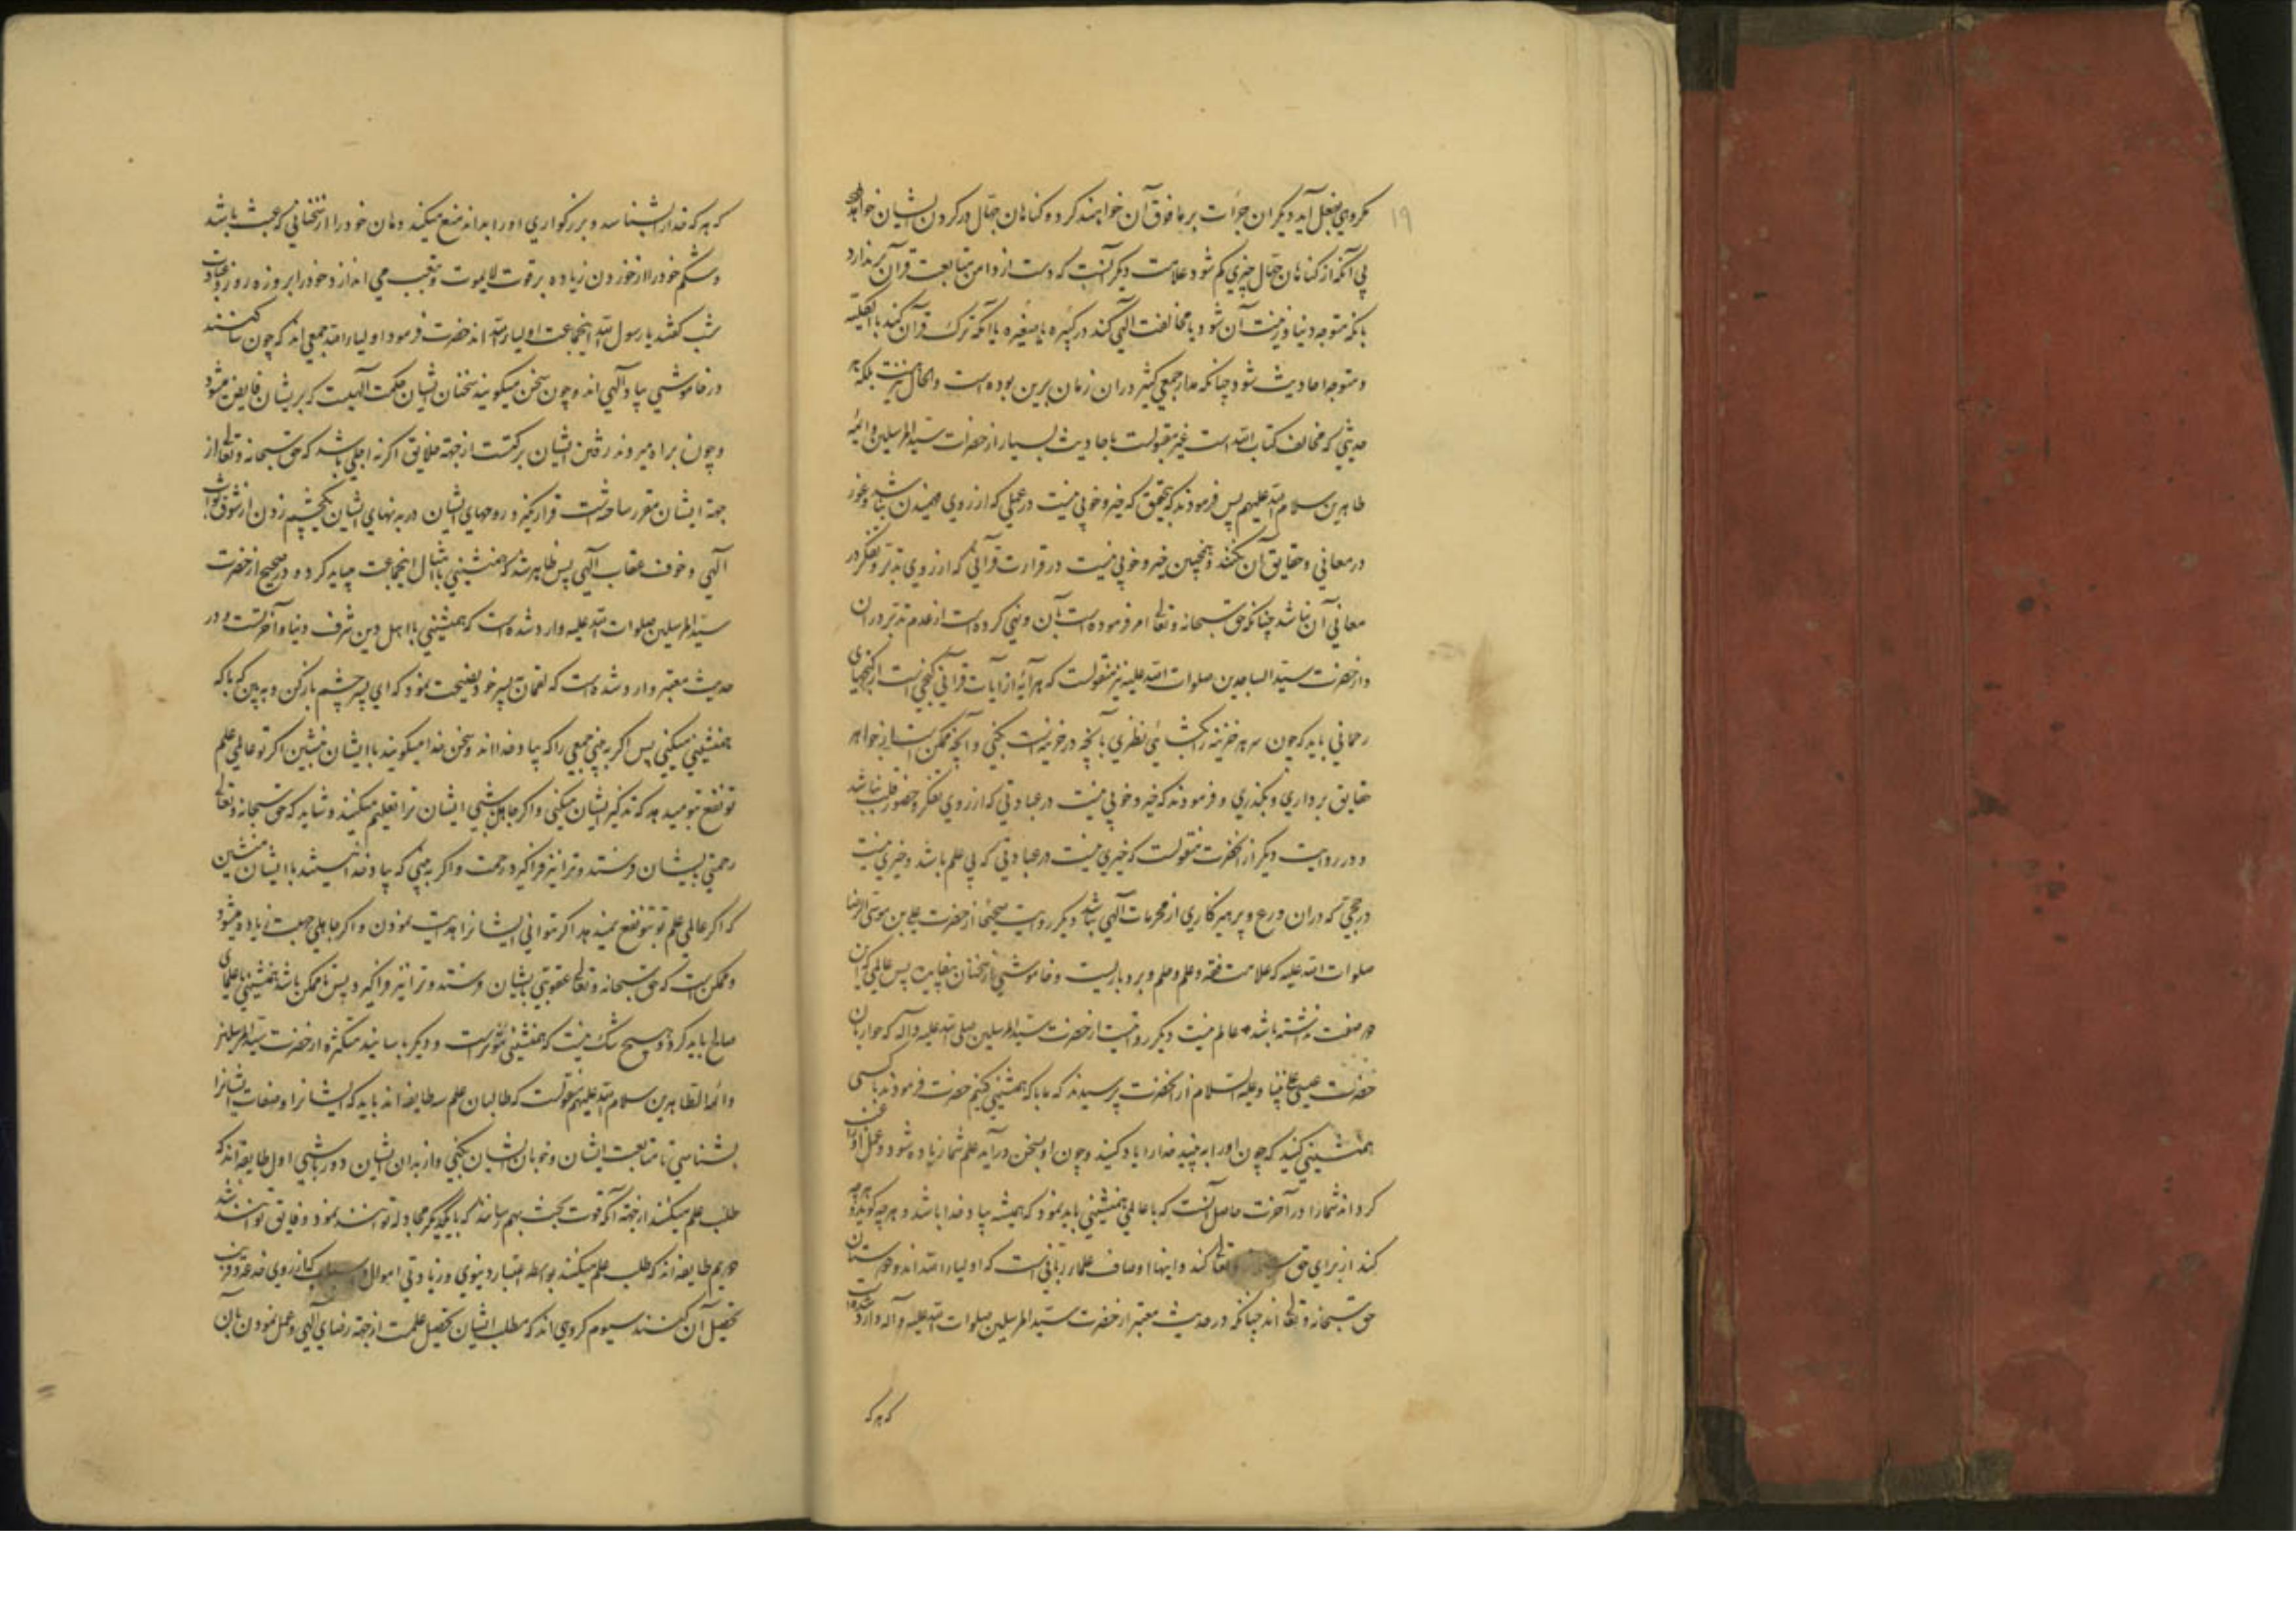 ۱۹
مکروهی بفعل آید دیکران جرأت بر ما فوق آن خواهند کرد و کناهان جهال در کردن ایشان خواهد
بی آنکه از کناهان جهال چیزی کم شود علامت دیکر آنست که دست از دامن متابعت قرآن بر ندارد
بانکه متوجه دنیا و زینت آن شود یا مخالفت الهی کند در کبیره یا صغیره یا آنکه ترک قرآن کند بالکلیه
و متوجه احادیث شود چنانکه مدار جمعی کثیر در ان زمان برین بوده است والحال نیز هست بلکه هر
حدیثی که مخالف کتاب الله است غیر مقبولست باحادیث بسیار از حضرات سید المرسلین و ائمه
طاهرین سلام الله علیهم پس فرمودند که بتحقیق که خیر و خوبی نیست در علمی که از روی فهمیدن نباشد و غور
در معانی و حقایق آن نکنند و همچنین خیر و خوبی نیست در قرائت قرآنی که از روی تدبر و تفکر در
معانی آن نباشد چنانکه حق سبحانه و تعالی امر فرموده است بآن و نهی کرده است از عدم تدبر در ان
و از حضرت سید الساجدین صلوات الله علیه نیز منقولست که هر آیهٔ از آیات قرآنی کنجی است از کنجهای
رحمانی باید که چون سر هر خزینه را بکشائی نظری بآنچه در خزینه است بکنی و آنچه ممکن است از جواهر
حقایق برداری و بکذری و فرمودند که خیر و خوبی نیست در عبادتی که از روی تفکر و حضور قلب نباشد
و در روایت دیکر از انحضرت منقولست که خیری نیست در عبادتی که بی علم باشد و خیری نیست
در حجی که دران ورع و پرهیزکاری از محرمات الهی نباشد دیکر روایت صحیحا از حضرت علی بن موسی الرضا
صلوات الله علیه که علامت فقه و علم و حلم و بردباریست و خاموشی از سخنان بیفایده پس عالمی که این
دو صفت نداشته باشد عالم نیست دیکر روایت از حضرت سید المرسلین صلی الله علیه و آله که حواریان
حضرت عیسی علی نبینا و علیه السلام از انحضرت پرسیدند که ما با که همنشینی کنیم حضرت فرمودند با کسی
همنشینی کنید که چون او را به بینید خدا را یاد کنید و چون او بسخن در آید علم شما زیاده شود و عمل او راغب
کرداند شما را در آخرت حاصل آنست که با عالمی همنشینی باید نمود که همیشه بیاد خدا باشد و هر چه کوید و هر چه
کند از برای حق سبحانه و تعالی کند و اینها اوصاف علماء ربانی است که اولیاء الله اند و دوستان
حق سبحانه و تعالی اند چنانکه در حدیث معتبر از حضرت سید المرسلین صلوات الله علیه و آله وارد شده است
که هر که
که هر که خدا را بشناسد و بزرکواری او را بداند منع میکند دهان خود را از سخنانی که عبث باشد
و شکم خود را از خوردن زیاده بر قوت لا یموت و بتعب می اندازد خود را بروزه روز و عبادت
شب کفتند یا رسول الله اینجماعت اولیاء الله اند حضرت فرمود اولیاء الله جمعی اند که چون ساکتند
در خاموشی بیاد الهی اند و چون سخن میکویند سخنان ایشان حکمت الهیست که بریشان فایض میشود
و چون براه میروند رفتن ایشان برکتست از جهة خلایق اکر نه اجلی باشد که حق سبحانه و تعالی از
جهة ایشان مقرر ساخته است قرار نکیرد روحهای ایشان در بدنهای ایشان یکچشم زدن از شوق ثواب
الهی و خوف عقاب الهی پس ظاهر شد که همنشینی با مثال اینجماعت میباید کرد و در صحیح از حضرت
سید المرسلین صلوات الله علیه وارد شده است که همنشینی با اهل دین شرف دنیا و آخرتست و در
حدیث معتبر وارد شده است که لقمان به پسر خود نصیحت نمود که ای پسر چشم باز کن و به بین که با که
همنشینی میکنی پس اکر به بینی جمعی را که بیاد خدا اند و سخن خدا میکویند با ایشان بنشین اکر تو عالمی علم
تو نفع بتو میدهد که تذکیر ایشان میکنی و اکر جاهل باشی ایشان ترا تعلیم میکنند و شاید که حق سبحانه و تعالی
رحمتی بایشان فرستد و ترا نیز فرا کیرد رحمت و اکر به بینی که بیاد خدا نیستند با ایشان منشین
که اکر عالمی علم تو بتو نفع نمیدهد اکر نتوانی ایشانرا هدایت نمودن و اکر جاهلی جهلت زیاده میشود
و ممکن است که حق سبحانه و تعالی عقوبتی بایشان فرستد و ترا نیز فرا کیرد پس تا ممکن باشد همنشینی با علمای
صالح باید کرد و هیچ شک نیست که همنشینی مؤثر است و دیکر باسانید متکثره از حضرت سید المرسلین
و ائمه الطاهرین سلام الله علیهم منقولست که طالبان علم سه طایفه اند باید که ایشانرا و صفات ایشانرا
بشناسی تا متابعت ایشان و خوبان ایشان بکنی و از بدان ایشان دور باشی اول طایفه اند که
طلب علم میکنند از جهة آنکه قوت بحث بهم رسانند که با یکدیکر مجادله توانند نمود و فایق توانند شد
دویم طایفه اند که طلب علم میکنند بواسطه اعتبار دنیوی و زیادتی اموال و اسباب که از روی خدعه و فریب
تحصیل آن کنند سیوم کروهی اند که مطلب ایشان تحصیل علمست از جهة رضای الهی و عمل نمودن بآن